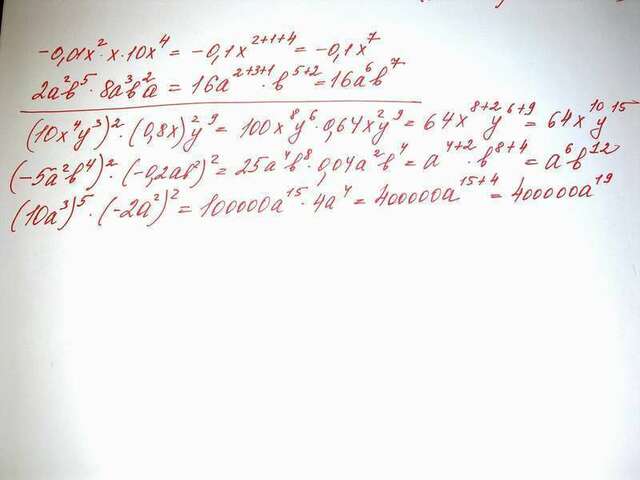 -0,01x²·x·10x⁴ = -0,1x²⁺¹⁺⁴ = -0,1x⁷
2a²b⁵·8a³b²a = 16a²⁺³⁺¹·b⁵⁺² = 16a⁶b⁷
(10x⁴y³)²·(0,8x)²y⁹ = 100x⁸y⁶·0,64x²y⁹ = 64x⁸⁺²y⁶⁺⁹ = 64x¹⁰y¹⁵
(-5a²b⁴)²·(-0,2ab²)² = 25a⁴b⁸·0,04a²b⁴ = a⁴⁺²·b⁸⁺⁴ = a⁶b¹²
(10a³)⁵·(-2a²)² = 100000a¹⁵·4a⁴ = 400000a¹⁵⁺⁴ = 400000a¹⁹